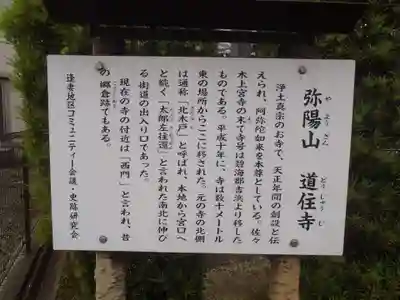 弥陽山 道住寺
やようざん どうじゅうじ
浄土真宗のお寺で、天正年間の創設と伝
えられ、阿弥陀如来を本尊としている。佐々
木上宮寺の末で寺号は碧海郡吉浜より移した
ものである。平成十年に、寺は数十メートル
東の場所からここに移された。元の寺の北側
は通称「北木戸」と呼ばれ、本地から宮口へ
と続く「太郎左往還」と言われた南北に伸び
る街道の出入り口であった。
現在の寺の付近は「西門」と言われ、昔
の郷倉跡でもある。
逢妻地区コミュニティー会議・史跡研究会